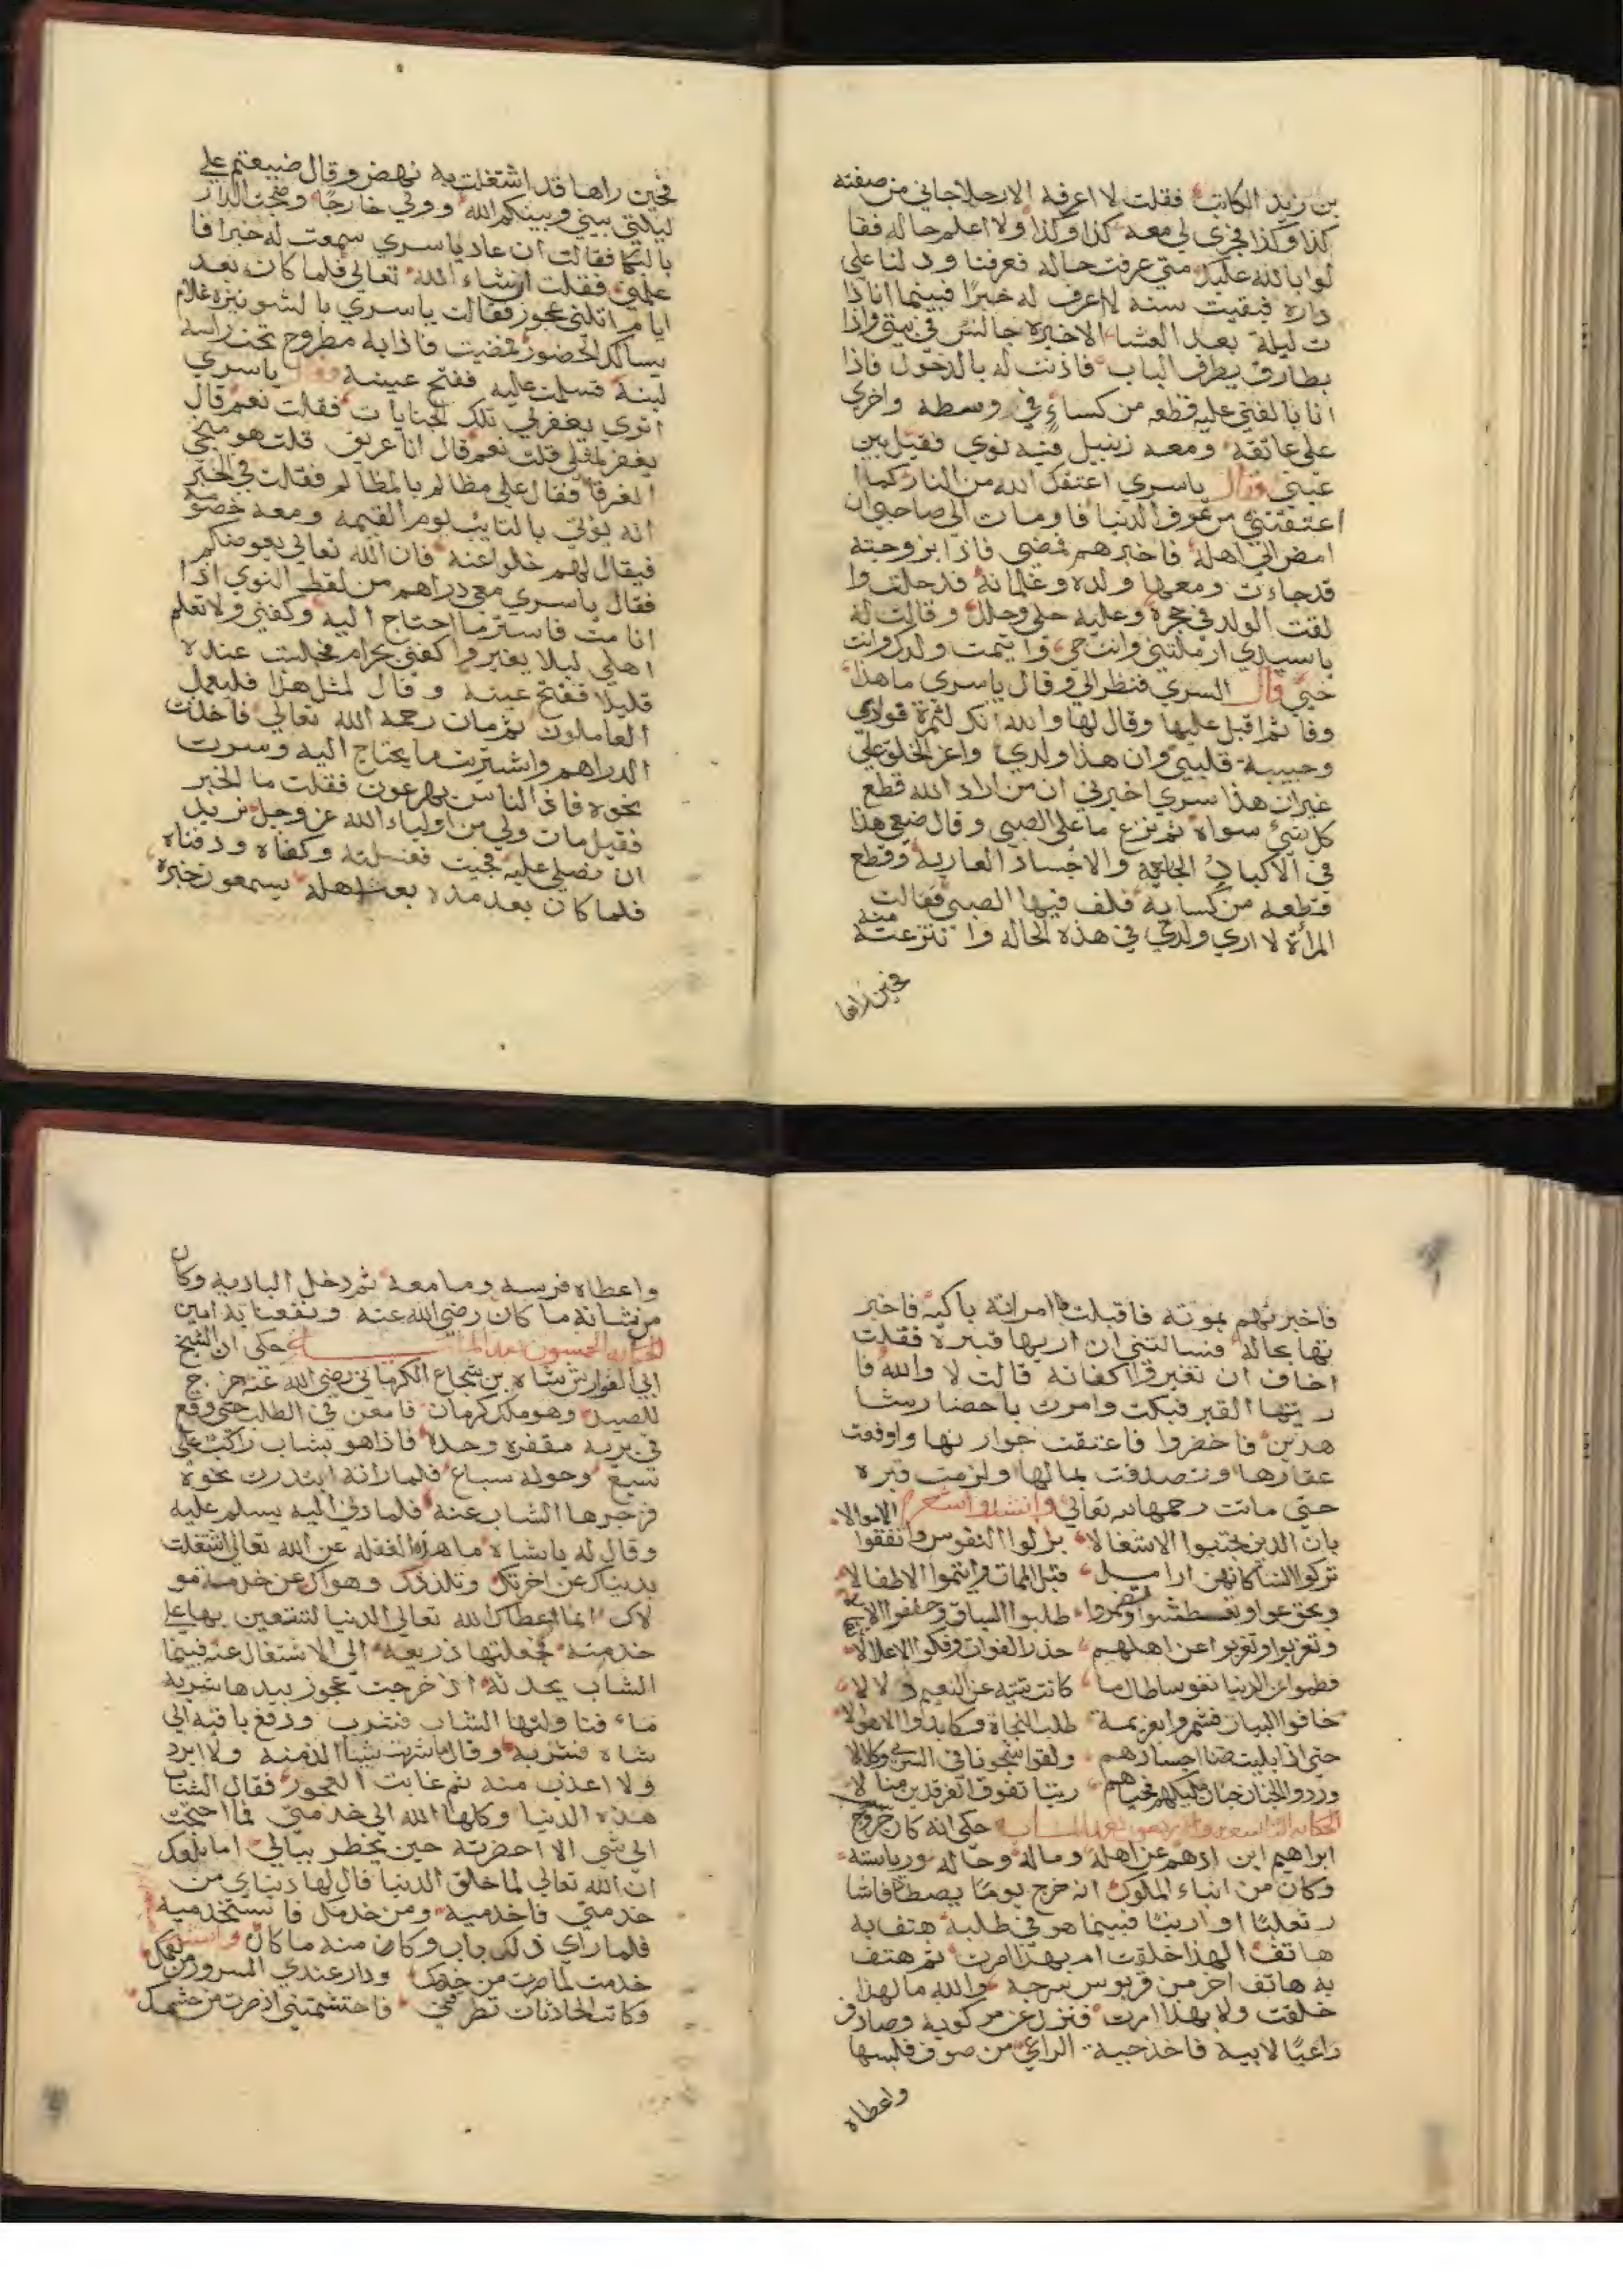 بن زيد الكاتب فقلت لا اعرفه الا رجلا جاني من صفته
كذا وكذا فجري لي معه كذا وكذا ولا اعلم حاله فقا
لوا بالله عليك متي عرفت حاله فعرفنا ودلنا علي
داره فبقيت سنة لا اعرف له خبرًا فبينما انا ذا
ت ليلة بعد العشاء الاخيرة جالس في بيتي واذا
بطارق يطرق الباب فاذنت له بالدخول فاذا
انا بالفتي عليه قطعه من كساءٍ في وسطه واخري
علي عاتقه ومعه زنبيل فيه نوي فقبل بين
عيني وقال ياسري اعتقك الله من النار كما
اعتقتني من الدنيا فاومات الي صاحبي ان
امض الي اهله فاخبرهم فمضي فاذا بزوجته
قد جاءت ومعها ولده وغلمانه فدخلت وا
لقت الولد في حجره وعليه حلي وحلل وقالت له
ياسيدي ارملتني وانت حي وايتمت ولدك وانت
حي قال السري فنظر الي وقال ياسري ما هذا
وفا ثم اقبل عليها وقال لها والله انك لثمرة فوادي
وحبيبة قلبي وان هذا ولدي واعز الخلق علي
غير ان هذا سري اخبرني ان من اراد الله قطع
كل شيء سواه ثم نزع ما علي الصبي وقال ضعي هذا
في الاكباد الجايعة والاجساد العارية وقطع
قطعه من كسايه فلف فيها الصبي فقالت
المرأة لا اري ولدي في هذه الحاله وانتزعته منه
فحين راها
فحين راها قد اشتغلت به نهض وقال ضيعتم علي
ليلتي بيني وبينكم الله وولي خارجًا وضجت الدار
بالبكا فقالت ان عاد ياسري سمعت له خبرا فا
علمني فقلت ان شاء الله تعالي فلما كان بعد
ايام اتتني عجوز فقالت ياسري بالشونيزه غلام
يسالك الحضور فمضيت فاذا به مطروح تحت راسه
لبنة فسلمت عليه ففتح عينيه وقال ياسري
اتري يغفر لي تلك الجنايات فقلت نعم قال
يغفر لمثلي قلت نعم قال انا غريق قلت هو منجي
الغرقا فقال علي مظالم بالمظالم فقالت في الخبر
انه يؤتي بالتايب يوم القيمه ومعه خصومه
فيقال لهم خلوا عنه فان الله تعالي يعوضكم
فقال ياسري معي دراهم من لقط النوي اذا
انا مت فاستر ما احتاج اليه وكفني ولا تعلم
اهلي ليلا يغيروا كفني بحرام فجلست عنده
قليلا ففتح عينيه وقال لمثل هذا فليعمل
العاملون ثم مات رحمه الله تعالي فاخذت
الدراهم واشتريت ما يحتاج اليه وسرت
نحوه فاذ الناس يهرعون فقلت ما الخبر
فقيل مات ولي من اولياء الله عز وجل نريد
ان نصلي عليه فجيت فغسلته وكفناه ودفناه
فلما كان بعد مده بعث اهله يسمعون خبره
فاخبرتهم بموته فاقبلت امراته باكيه فاخبر
تها بحاله فسالتني ان اريها قبره فقلت
اخاف ان تغيروا اكفانه قالت لا والله فا
ريتها القبر فبكت وامرت باحضار شا
هدين فاحضروا فاعتقت جوارها واوقفت
عقارها وتصدقت بمالها ولزمت قبره
حتي ماتت رحمها الله تعالي وانشدوا شعر
بان الذين جنبوا الاشغالا بذلوا النفوس وانفقوا الاموالا
تركوا النساء كانهن اراملٌ قبل الممات وايتموا الاطفالا
وتجوعوا وتعطشوا وتضمروا طلبوا السباق وخففوا
وتغربوا وتغربوا عن اهلهم حذر الفوات وفكوا الاغلالا
فطموا عن الدنيا نفوسا طال ما كانت تتيه عن النعيم دلالا
خافوا البيات فشمروا بعزيمة طلب النجاة وكابدوا الاهوالا
حتي اذا بليت ضنا اجسادهم ولقوا شجونا في السري وكلالا
وردوا الجنان جنان مليكهم فحباهم رتبا تفوق الفرقدين منالا
الحكايه التاسعه والاربعون بعد المايه حكي انه كان خروج
ابراهيم ابن ادهم عن اهله وماله وحاله ورياسته
وكان من ابناء الملوك انه خرج يومًا يصطاد فاثا
ر ثعلبًا او ارنبًا فبينما هو في طلبه هتف به
هاتف الهذا خلقت ام بهذا امرت ثم هتف
به هاتف اخر من قربوس سرجه والله ما لهذا
خلقت ولا بهذا امرت فنزل عن مركوبه وصادف
راعيًا لابيه فاخذ جبه الراعي من صوف فلبسها
واعطاه
واعطاه فرسه وما معه ثم دخل الباديه وكان
من شانه ما كان رضي الله عنه ونفعنا به امين
الحكايه الخمسون بعد المايه حكي ان الشيخ
ابي الفوارش شاه بن شجاع الكرماني رضي الله عنه خرج
للصيد وهو ملك كرمان فامعن في الطلب حتي وقع
في بريه مقفره وحده فاذا هو بشاب راكب علي
سبع وحوله سباع فلما راته ابتدرت نحوه
فزجرها الشاب عنه فلما دني اليه يسلم عليه
وقال له ياشاه ما هذه الغفله عن الله تعالي اشتغلت
بدنياك عن اخرتك وتلذذك وهواك عن خدمة مو
لاك انما اعطاك الله تعالي الدنيا لتستعين بها علي
خدمته فجعلتها ذريعه الي الاشتغال عنه فبينما
الشاب يحدثه اذ خرجت عجوز بيدها شربة
ماء فناولتها الشاب فشرب ودفع باقيه الي
شاه فشربه وقال ما شربت شيأ الذ منه ولا ابرد
ولا اعذب منه ثم غابت العجوز فقال الشاب
هذه الدنيا وكلها الله الي خدمتي فما احتجت
الي شي الا احضرته حين يخطر ببالي اما بلغك
ان الله تعالي لما خلق الدنيا قال لها دنياي من
خدمني فاخدميه ومن خدمك فاستخدميه
فلما راي ذلك تاب وكان منه ما كان وانشد
خدمت لما صرت من خدمك ودار عندي السرور من نعمك
وكانت الحادثات تطرقني فاحتشمتني اذ صرت من حشمك